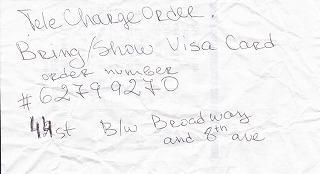 TeleChargeOrder.
Bring/Show Visa Card
order number
#62799270
44st B/w Broadway
and 8th ave